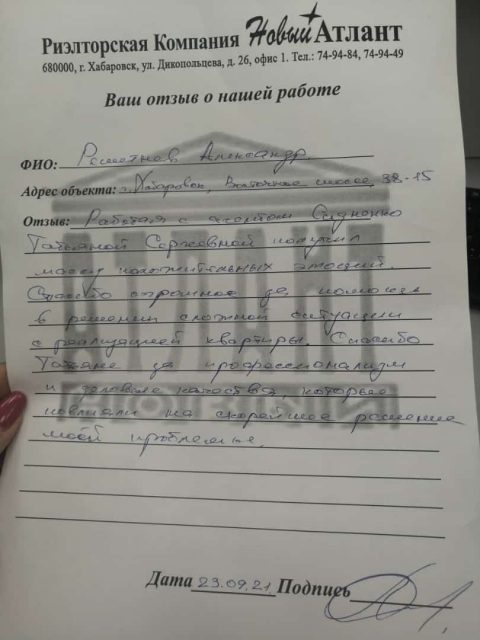 Риэлторская Компания Новый Атлант
680000, г. Хабаровск, ул. Дикопольцева, д. 26, офис 1. Тел.: 74-94-84, 74-94-49
Ваш отзыв о нашей работе
ФИО: Решетнев Александр
Адрес объекта: г. Хабаровск, Восточное шоссе, 38-15
Отзыв: Работая с агентом
Татьяной Сергеевной получил
массу положительных эмоций.
Спасибо огромное за помощь
в решении сложной ситуации
с реализацией квартиры. Спасибо
Татьяне за профессионализм
и деловые качества, которые
повлияли на скорейшее решение
моей проблемы.
АТЛАНТ
Дата 23.09.21 Подпись